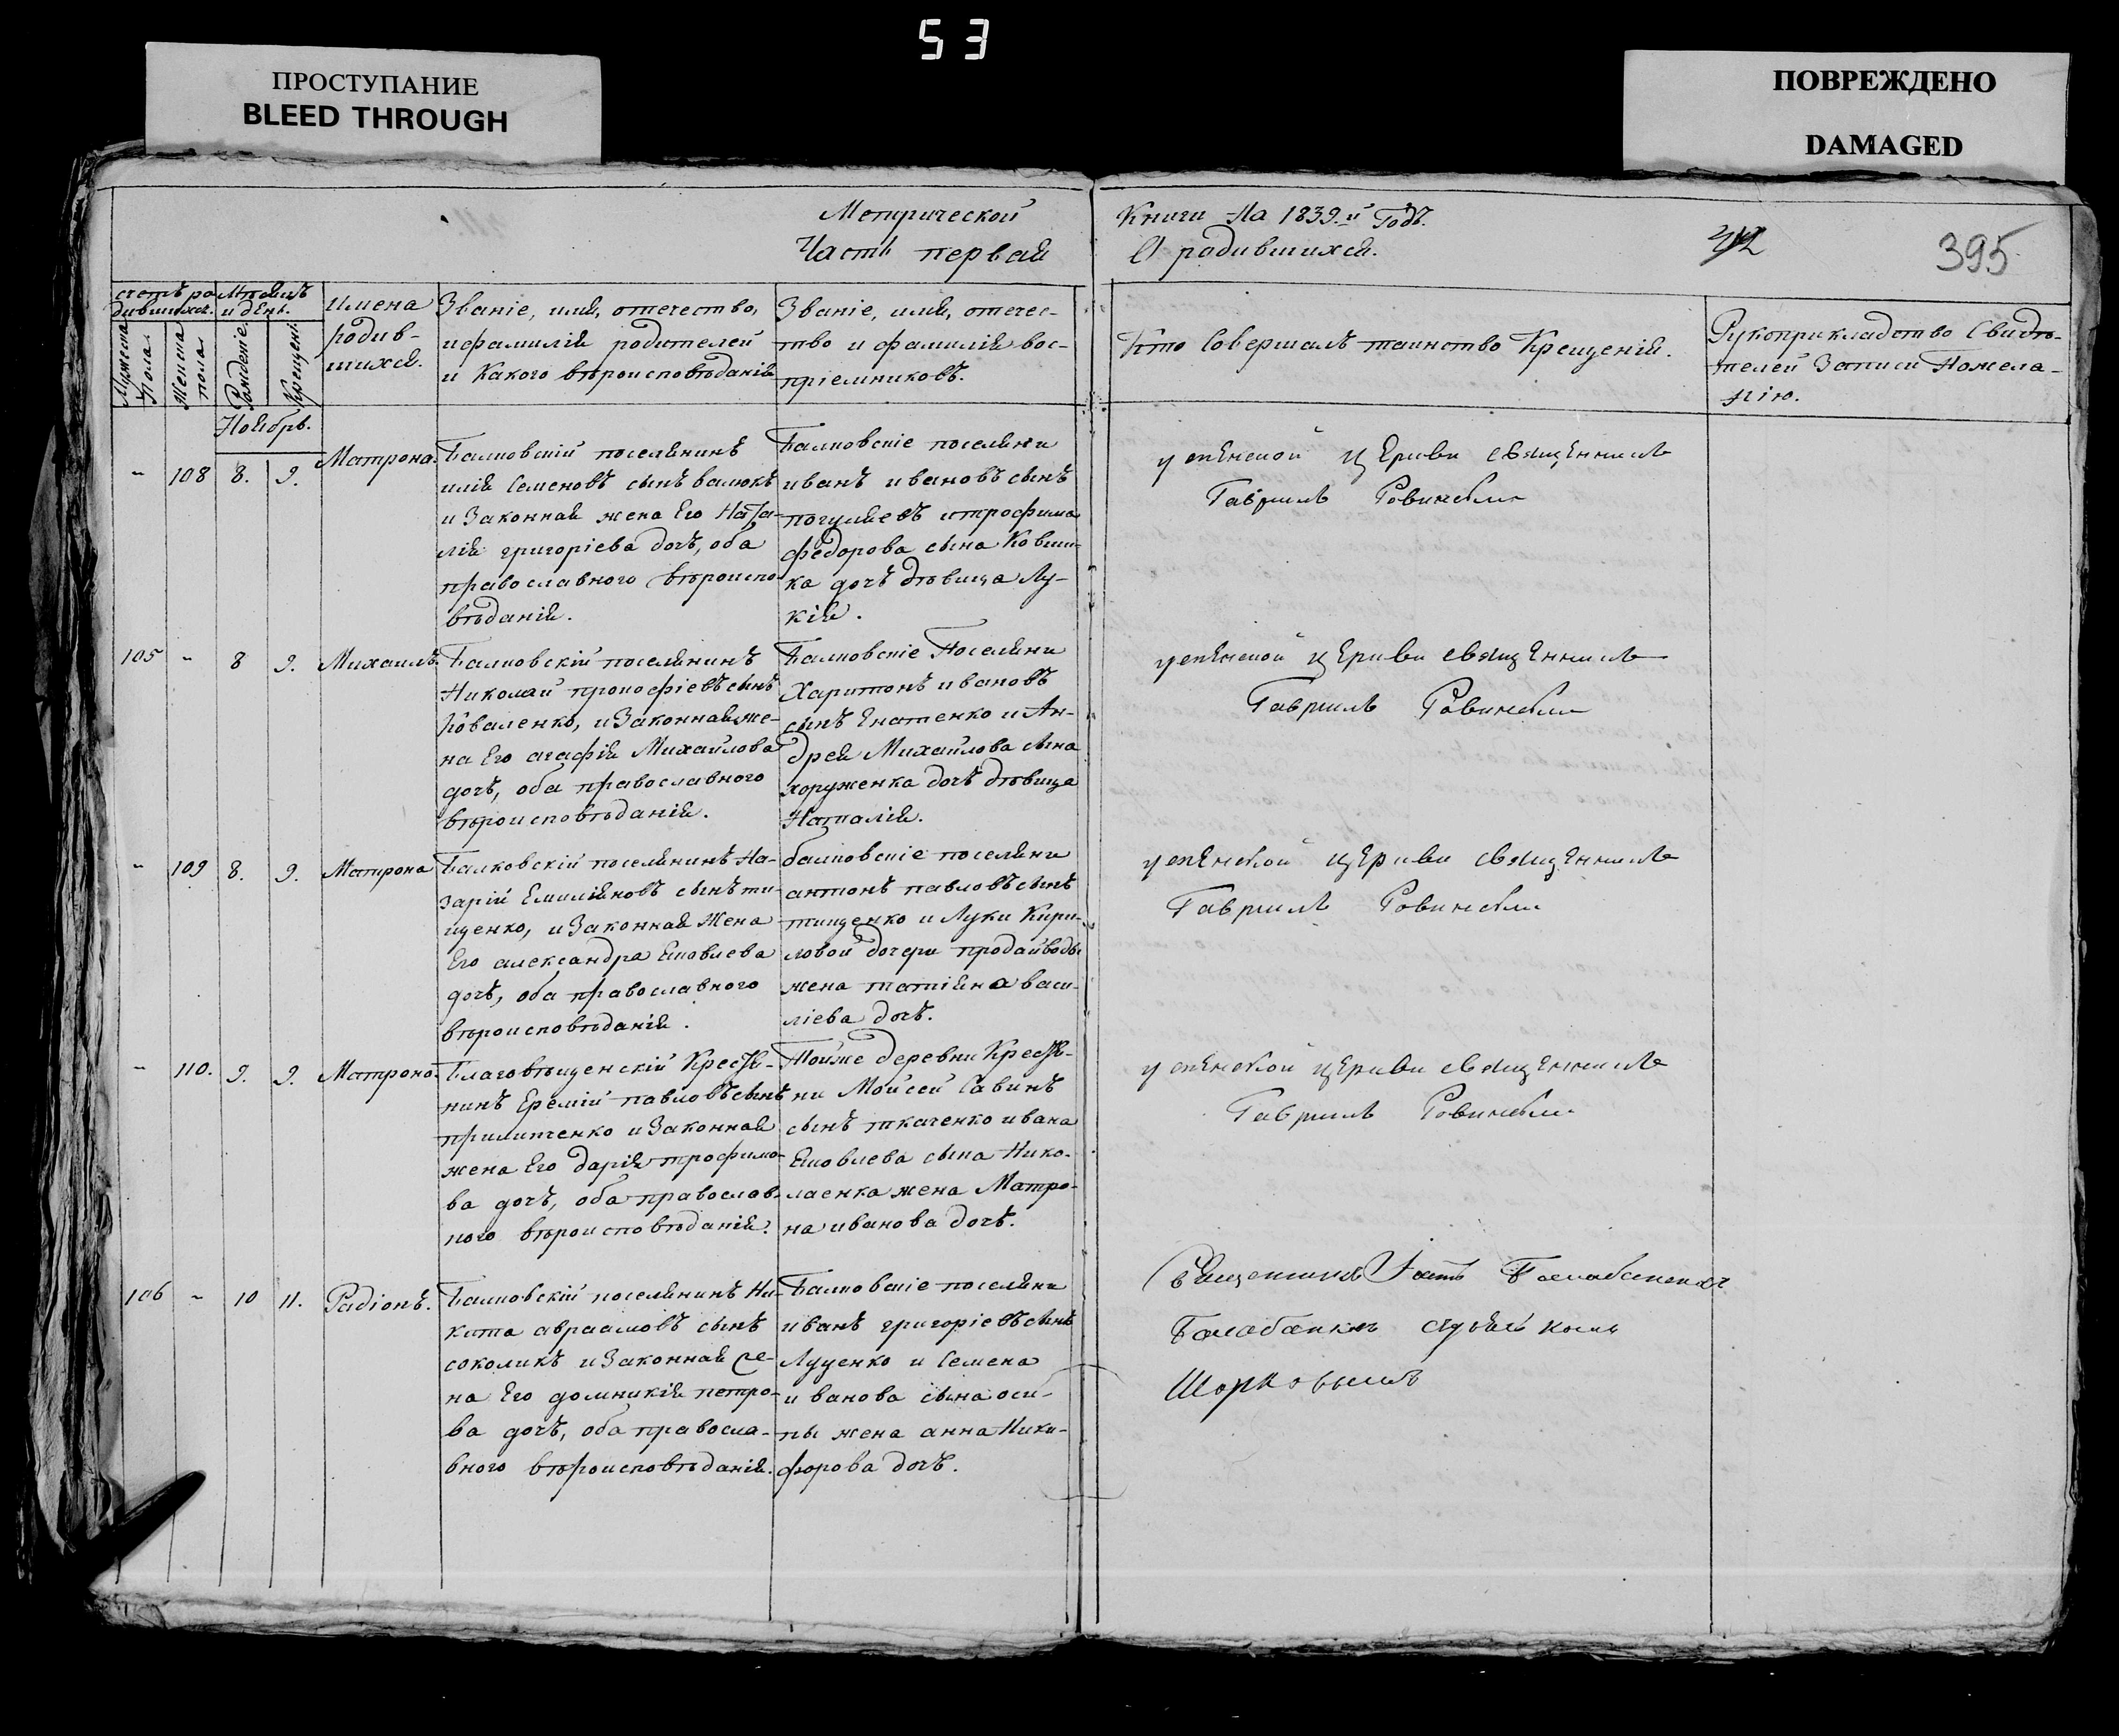 53
ПРОСТУПАНИЕ
BLEED THROUGH
ПОВРЕЖДЕНО
DAMAGED
Метрической
Часть первая
Книги На 1839.й Годъ.
О родившихся.
395
счетъ ро-
дившихся.
Мужеска
пола
Женска
пола
Мѣсяцъ
и день.
Рожденіе.
Крещеніе.
Имена
родив-
шихся.
Званіе, имя, отечество,
и фамилія родителей
и Какого вѣроисповѣданія
Званіе, имя, отечес-
тво и фамилія вос-
пріемниковъ.
Кто Совершалъ таинство Крещенія.
Рукоприкладство Свидѣ-
телей Записи Пожела-
нію.
Ноябрь.
- 108 8. 9. Матрона.
Балковскій поселянинъ
илія Семеновъ сынъ валюкъ
и Законная жена Его Ната-
лія григоріева дочь, оба
православного вѣроиспо-
вѣданія.
Балковскіе поселяни
иванъ ивановъ сынъ
и трофима
федорова сына Ковши-
ка дочь дѣвица Лу-
кія.
успенской церкви священникъ
Гавриилъ Ровинскій
105 - 8 9. Михаилъ.
Балковскій поселянинъ
Николай прокофіевъ сынъ
Коваленко, и Законная же-
на Его агафія Михайлова
дочь, оба православного
вѣроисповѣданія.
Балковскіе Поселяни
Харитонъ ивановъ
сынъ Гнатенко и Ан-
дрея Михайлова сына
хоруженка дочь дѣвица
Наталія.
успенской церкви священникъ
Гавриилъ Ровинскій
- 109 8. 9. Матрона
Балковскій поселянинъ На-
зарій Емиліяновъ сынъ ти-
щенко, и Законная Жена
Его александра Яковлева
дочь, оба православного
вѣроисповѣданія.
балковскіе поселяни
антонъ павловъ сынъ
тищенко и Луки Кири-
ловой дочери продайводы
жена татіяна васи-
ліева дочь.
успенской церкви священникъ
Гавриилъ Ровинскій
- 110. 9. 9. Матрона.
Благовѣщенскій Крестья-
нинъ Еремій павловъ сынъ
прилипченко и Законная
жена Его дарія трофимо-
ва дочь, оба православ-
ного вѣроисповѣданія.
Тойже деревни Крестья-
ни Мойсей Савинъ
сынъ ткаченко ивана
Яковлева сына Нико-
лаенка жена Матро-
на иванова дочь.
успенской церкви священникъ
Гавриилъ Ровинскій
106 - 10 11. Радіонъ.
Балковскій поселянинъ Ни-
кита авраамовъ сынъ
соколикъ и Законная же-
на Его домникія петро-
ва дочь, оба правосла-
вного вѣроисповѣданія.
Балковскіе поселяни
иванъ григоріевъ сынъ
Луценко и Семена
иванова сына оси-
пы жена анна Ники-
форова дочь.
Священникъ